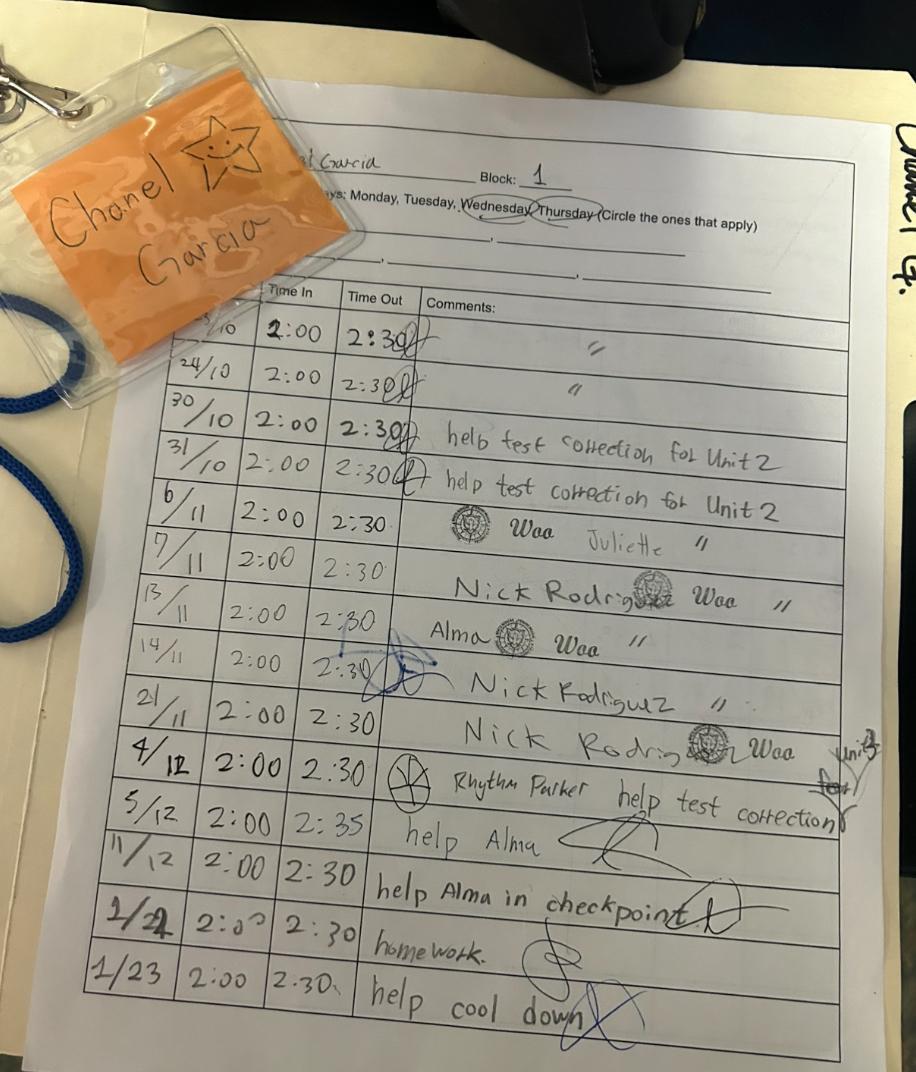 Chanel
Garcia
Chanel G.
Garcia Block: 1
Monday, Tuesday, Wednesday, Thursday (Circle the ones that apply)
Time In Time Out Comments:
/10 2:00 2:30 "
24/10 2:00 2:30 "
30/10 2:00 2:30 help test correction for Unit 2
31/10 2:00 2:30 help test correction for Unit 2
6/11 2:00 2:30 Woo Juliette "
7/11 2:00 2:30 Nick Rodriguez Woo "
13/11 2:00 2:30 Alma Woo "
14/11 2:00 2:30 Nick Rodriguez "
21/11 2:00 2:30 Nick Rodriguez Woo
4/12 2:00 2:30 Rhythm Parker help test correction for Unit3
5/12 2:00 2:35 help Alma
11/12 2:00 2:30 help Alma in checkpoint
2:00 2:30 homework.
1/23 2:00 2:30 help cool down